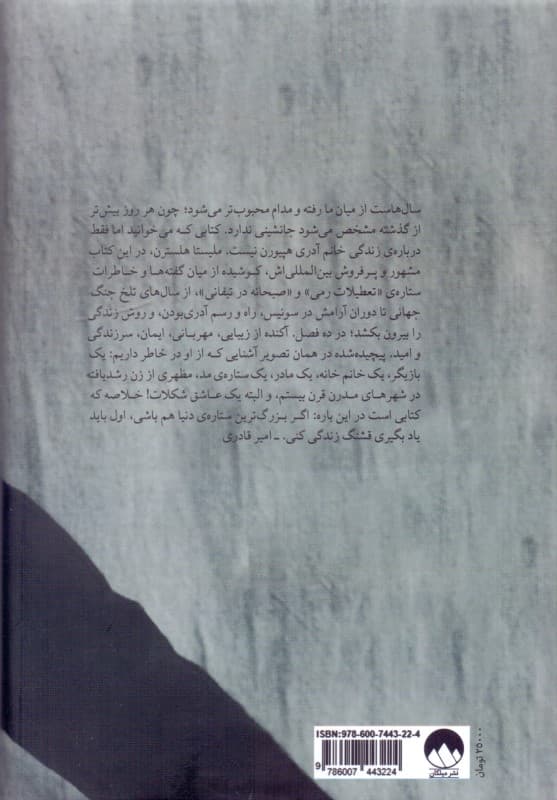 سال‌هاست از میان ما رفته و مدام محبوب‌تر می‌شود؛ چون هر روز بیش‌تر
از گذشته مشخص می‌شود جانشینی ندارد. کتابی که می‌خوانید اما فقط
درباره‌ی زندگی خانم آدری هیپورن نیست. ملیسا هلسترن، در این کتاب
مشهور و پرفروش بین‌المللی‌اش، کوشیده از میان گفته‌ها و خاطرات
ستاره‌ی «تعطیلات رمی» و «صبحانه در تیفانی»، از سال‌های تلخ جنگ
جهانی تا دوران آرامش در سوئیس، راه و رسم آدری‌بودن، و روش زندگی
را بیرون بکشد؛ در ده فصل. آکنده از زیبایی، مهربانی، ایمان، سرزندگی
و امید. پیچیده‌شده در همان تصویر آشنایی که از او در خاطر داریم: یک
بازیگر، یک خانم خانه، یک مادر، یک ستاره‌ی مد، مظهری از زن رشدیافته
در شهرهای مدرن قرن بیستم، و البته یک عاشق شکلات! خلاصه که
کتابی است در این باره: اگر بزرگ‌ترین ستاره‌ی دنیا هم باشی، اول باید
یاد بگیری قشنگ زندگی کنی. ـ امیر قادری
ISBN:978-600-7443-22-4
9 786007 443224
نشر میلکان
۲۵۰۰۰ تومان